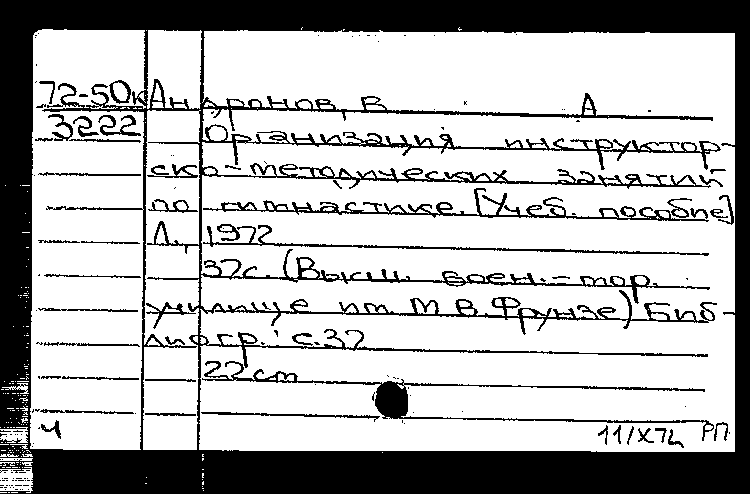 72-50к Андронов, В А
3222 Организация инструктор-
ско-методических занятий
по гимнастике. [Учеб. пособие]
Л., 1972
37с. (Высш. воен.-мор.
училище им. М В. Фрунзе) Биб-
лиогр.: с.37
22 cm
ч 11/X 72 РП